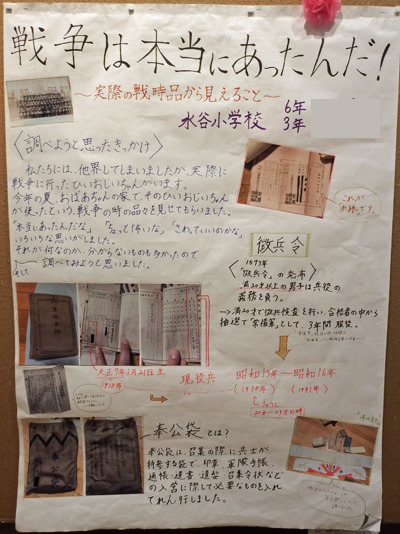 戦争は本当にあったんだ!
〜実際の戦時品から見えること〜
水谷小学校 6年
3年
〈調べようと思ったきっかけ〉
私たちには、他界してしまいましたが、実際に
戦争に行ったひいおじいちゃんがいます。
今年の夏、おばあちゃんの家で、そのひいおじいちゃん
が使ったという戦争の時の品々を見せてもらいました。
「本当にあったんだな」「ちょっと怖いな」「されていいのかな」
いろいろな思いがしました。
それが何なのか、分からないものも多かったので
調べてみようと思いました。
これが
です。
徴兵令
1873年
「徴兵令」の発布
満20才以上の男子は兵役の
義務を負う。
→満20才で徴兵検査を行い、合格者の中から
抽選で「常備軍」として、3年間服役。
大正7年1月21日生
1918年
現役兵
昭和13年〜昭和16年
(1938年) (1941年)
奉公袋とは?
奉公袋は、召集の際に兵士が
持参する袋で、印章、軍隊手帳、
召集令状などの
入営に際して必要なものを入れ
てれん行しました。